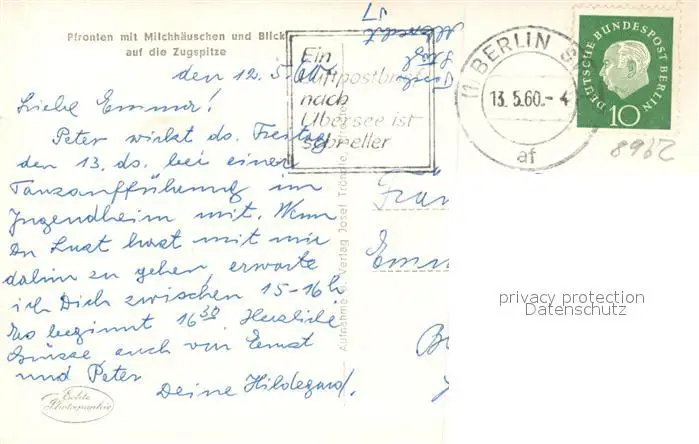 Pfronten mit Milchhäuschen und Blick
auf die Zugspitze
den 12.5.60.
Liebe Emma!
Peter wirkt ds. Freitag
den 13. ds. bei einer
Tanzaufführung im
Jugendheim mit. Wenn
Du Lust hast mit mir
dahin zu gehen, erwarte
ich Dich zwischen 15-16h
Es beginnt 16³⁰ Herzliche
Grüsse auch von Ernst
und Peter
Deine Hildegard.
Echte
Photographie
Aufnahme u. Verlag Josef
Ein
Luftpostbrief
nach
Übersee ist
schneller
(1 BERLIN
13.5.60.- 4
af
DEUTSCHE BUNDESPOST BERLIN
10
8962
Frän
Emm
privacy protection
Datenschutz